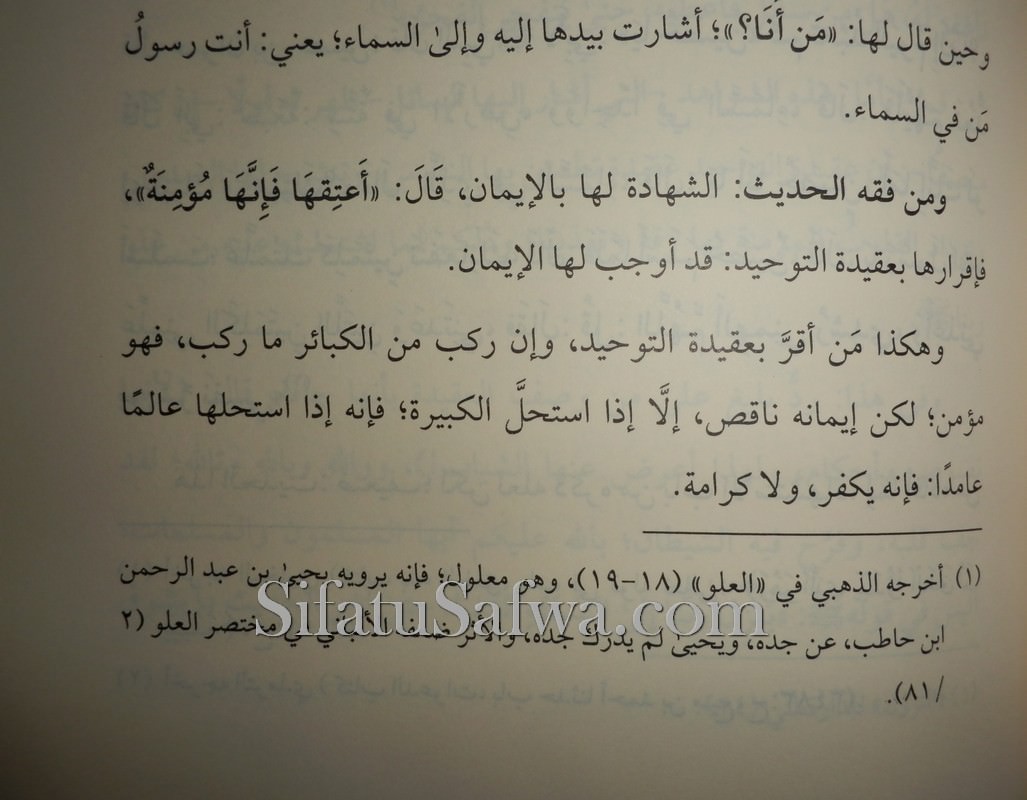 وحين قال لها: «مَن أَنَا؟»؛ أشارت بيدها إليه وإلىٰ السماء؛ يعني: أنت رسولُ
مَن في السماء.
ومن فقه الحديث: الشهادة لها بالإيمان، قَالَ: «أَعتِقهَا فَإِنَّهَا مُؤمِنَةٌ»،
فإقرارها بعقيدة التوحيد: قد أوجب لها الإيمان.
وهكذا مَن أقرَّ بعقيدة التوحيد، وإن ركب من الكبائر ما ركب، فهو
مؤمن؛ لكن إيمانه ناقص، إلَّا إذا استحلَّ الكبيرة؛ فإنه إذا استحلها عالمًا
عامدًا: فإنه يكفر، ولا كرامة.
(١) أخرجه الذهبي في «العلو» (١٨-١٩)، وهو معلول؛ فإنه يرويه يحيىٰ بن عبد الرحمن
SifatuSafwa.com
ابن حاطب، عن جده، ويحيىٰ لم يدرك جده، والأثر ضعفه الألباني في مختصر العلو (٢
/٨١).